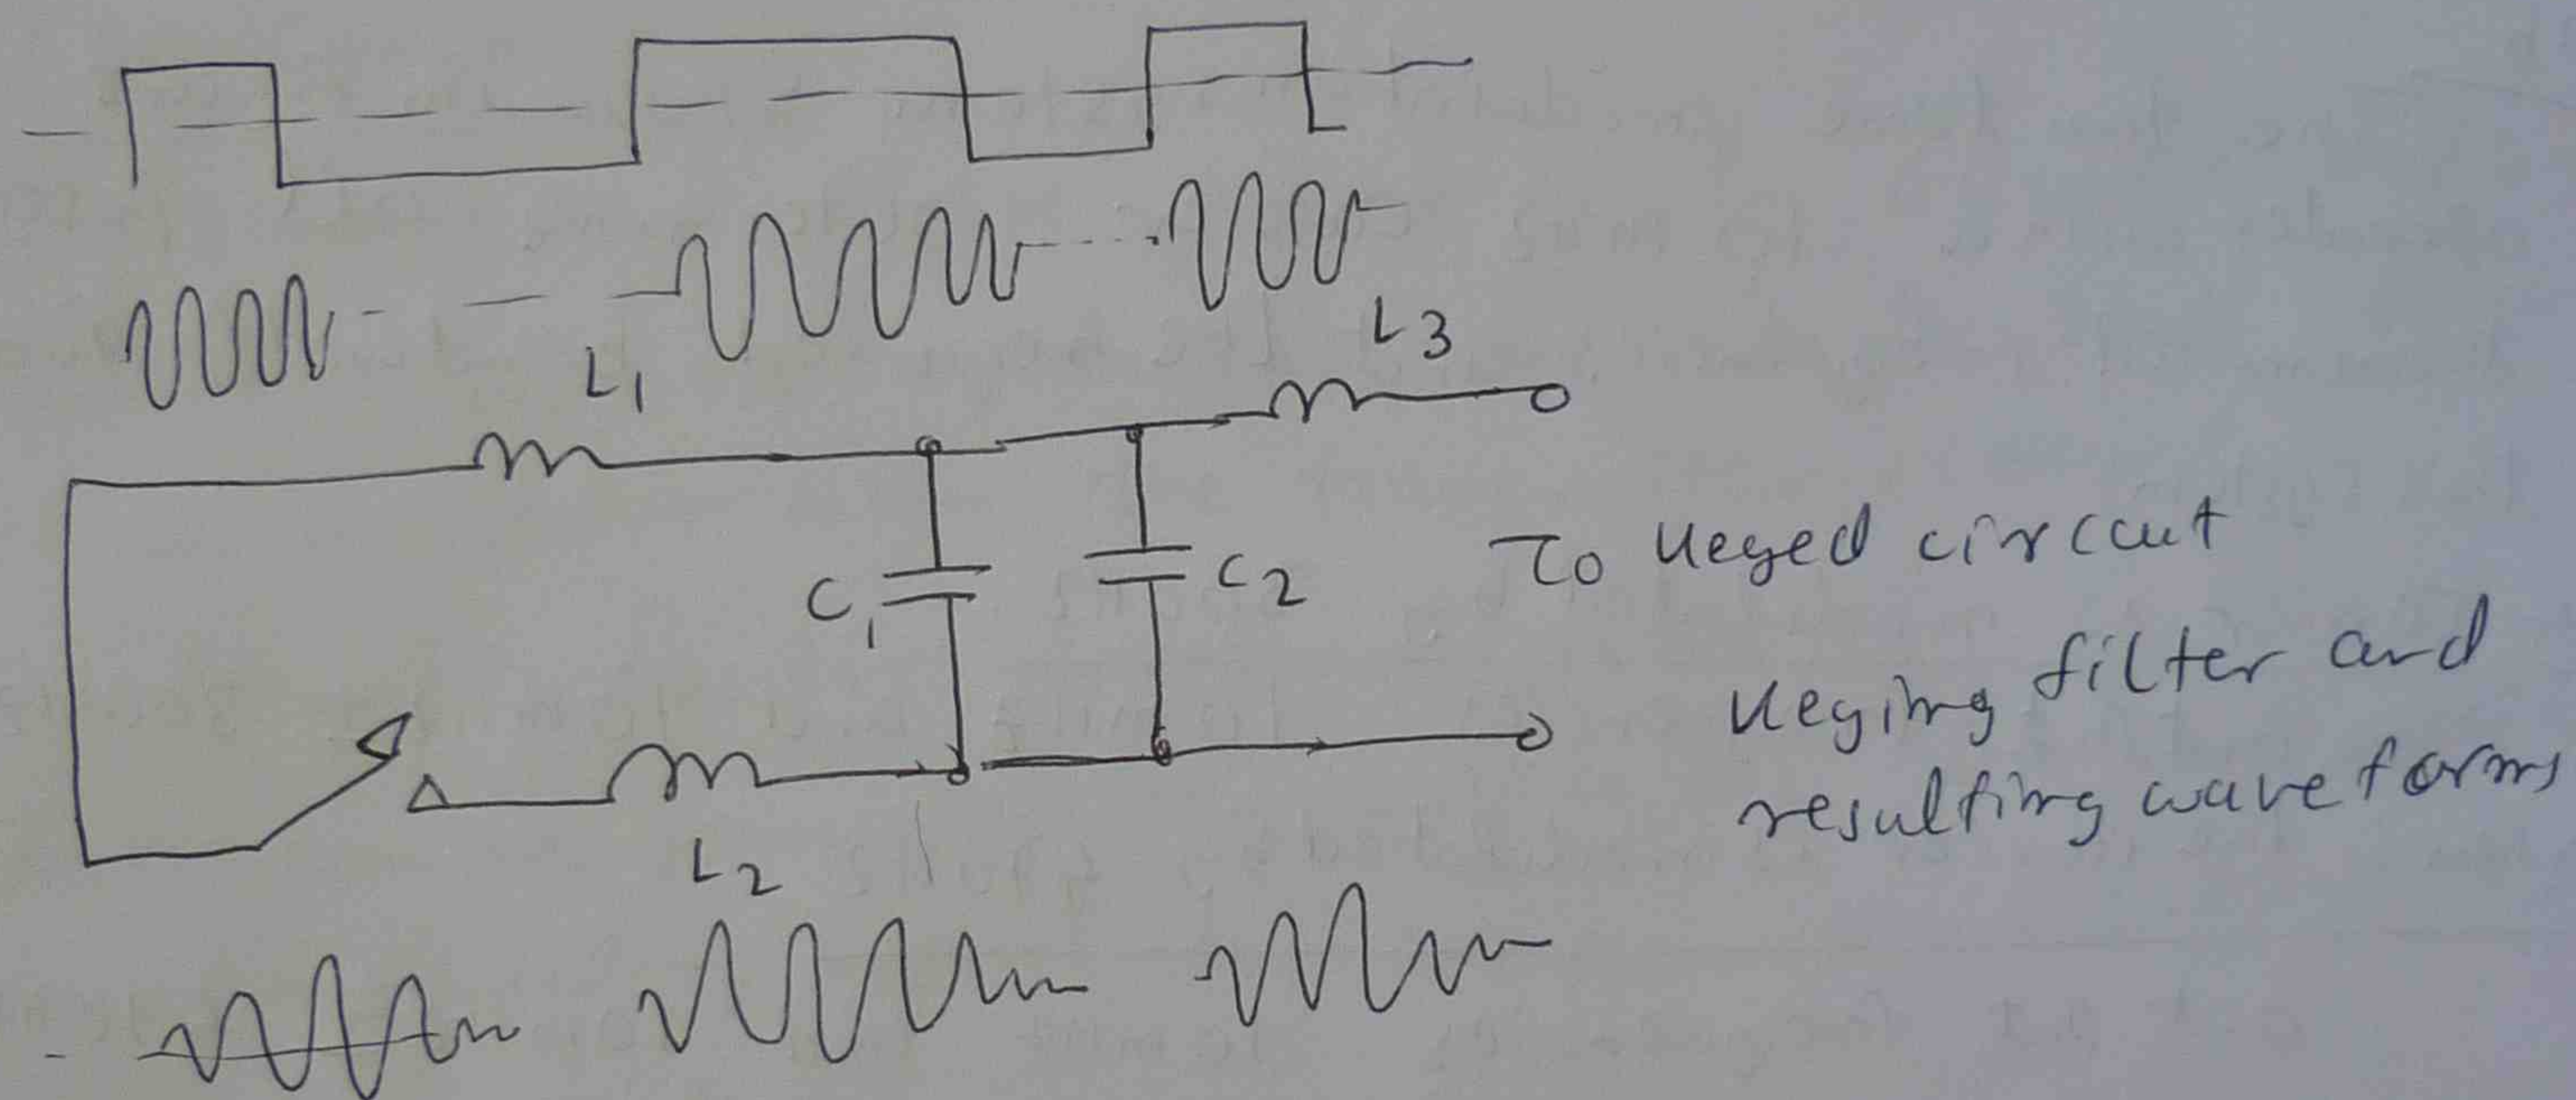 L1
L3
C1
C2
To Keyed circcut
Keying filter and
resulting waveforms
L2